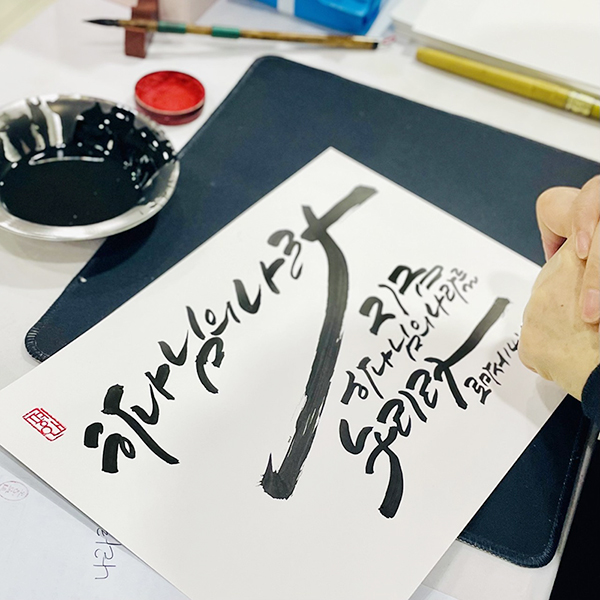 하나님의 나라
지금
하나님의 나라를
누리라
로마서